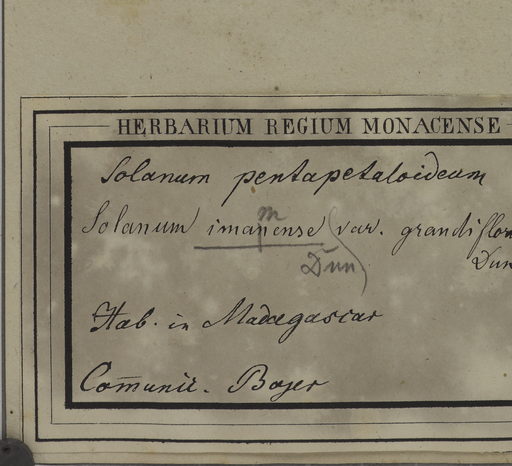 HERBARIUM REGIUM MONACENSE
Solanum pentapetaloideum
m
Solanum imanense var. grandiflor
Dun Dun
Hab. in Madagascar
Com̄unic. Bojer